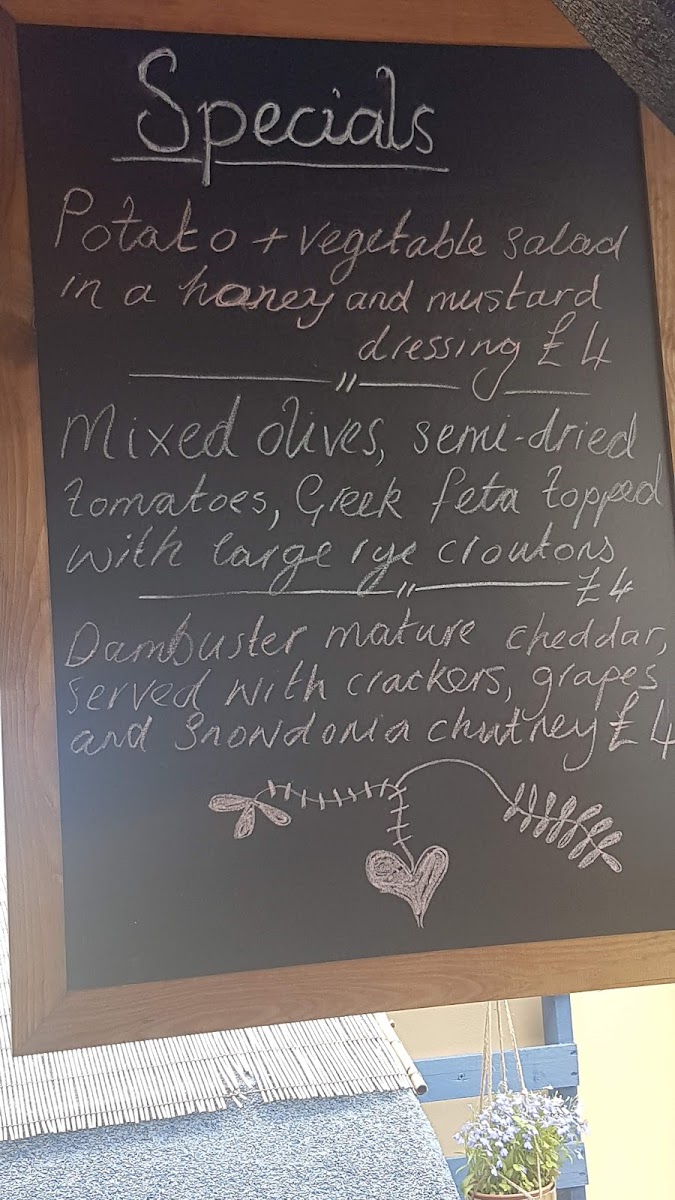 Specials
Potato + vegetable salad
in a honey and mustard
dressing £4
Mixed olives, semi-dried
tomatoes, Greek feta topped
with large rye croutons
£4
Dambuster mature cheddar,
served with crackers, grapes
and Snowdonia chutney £4